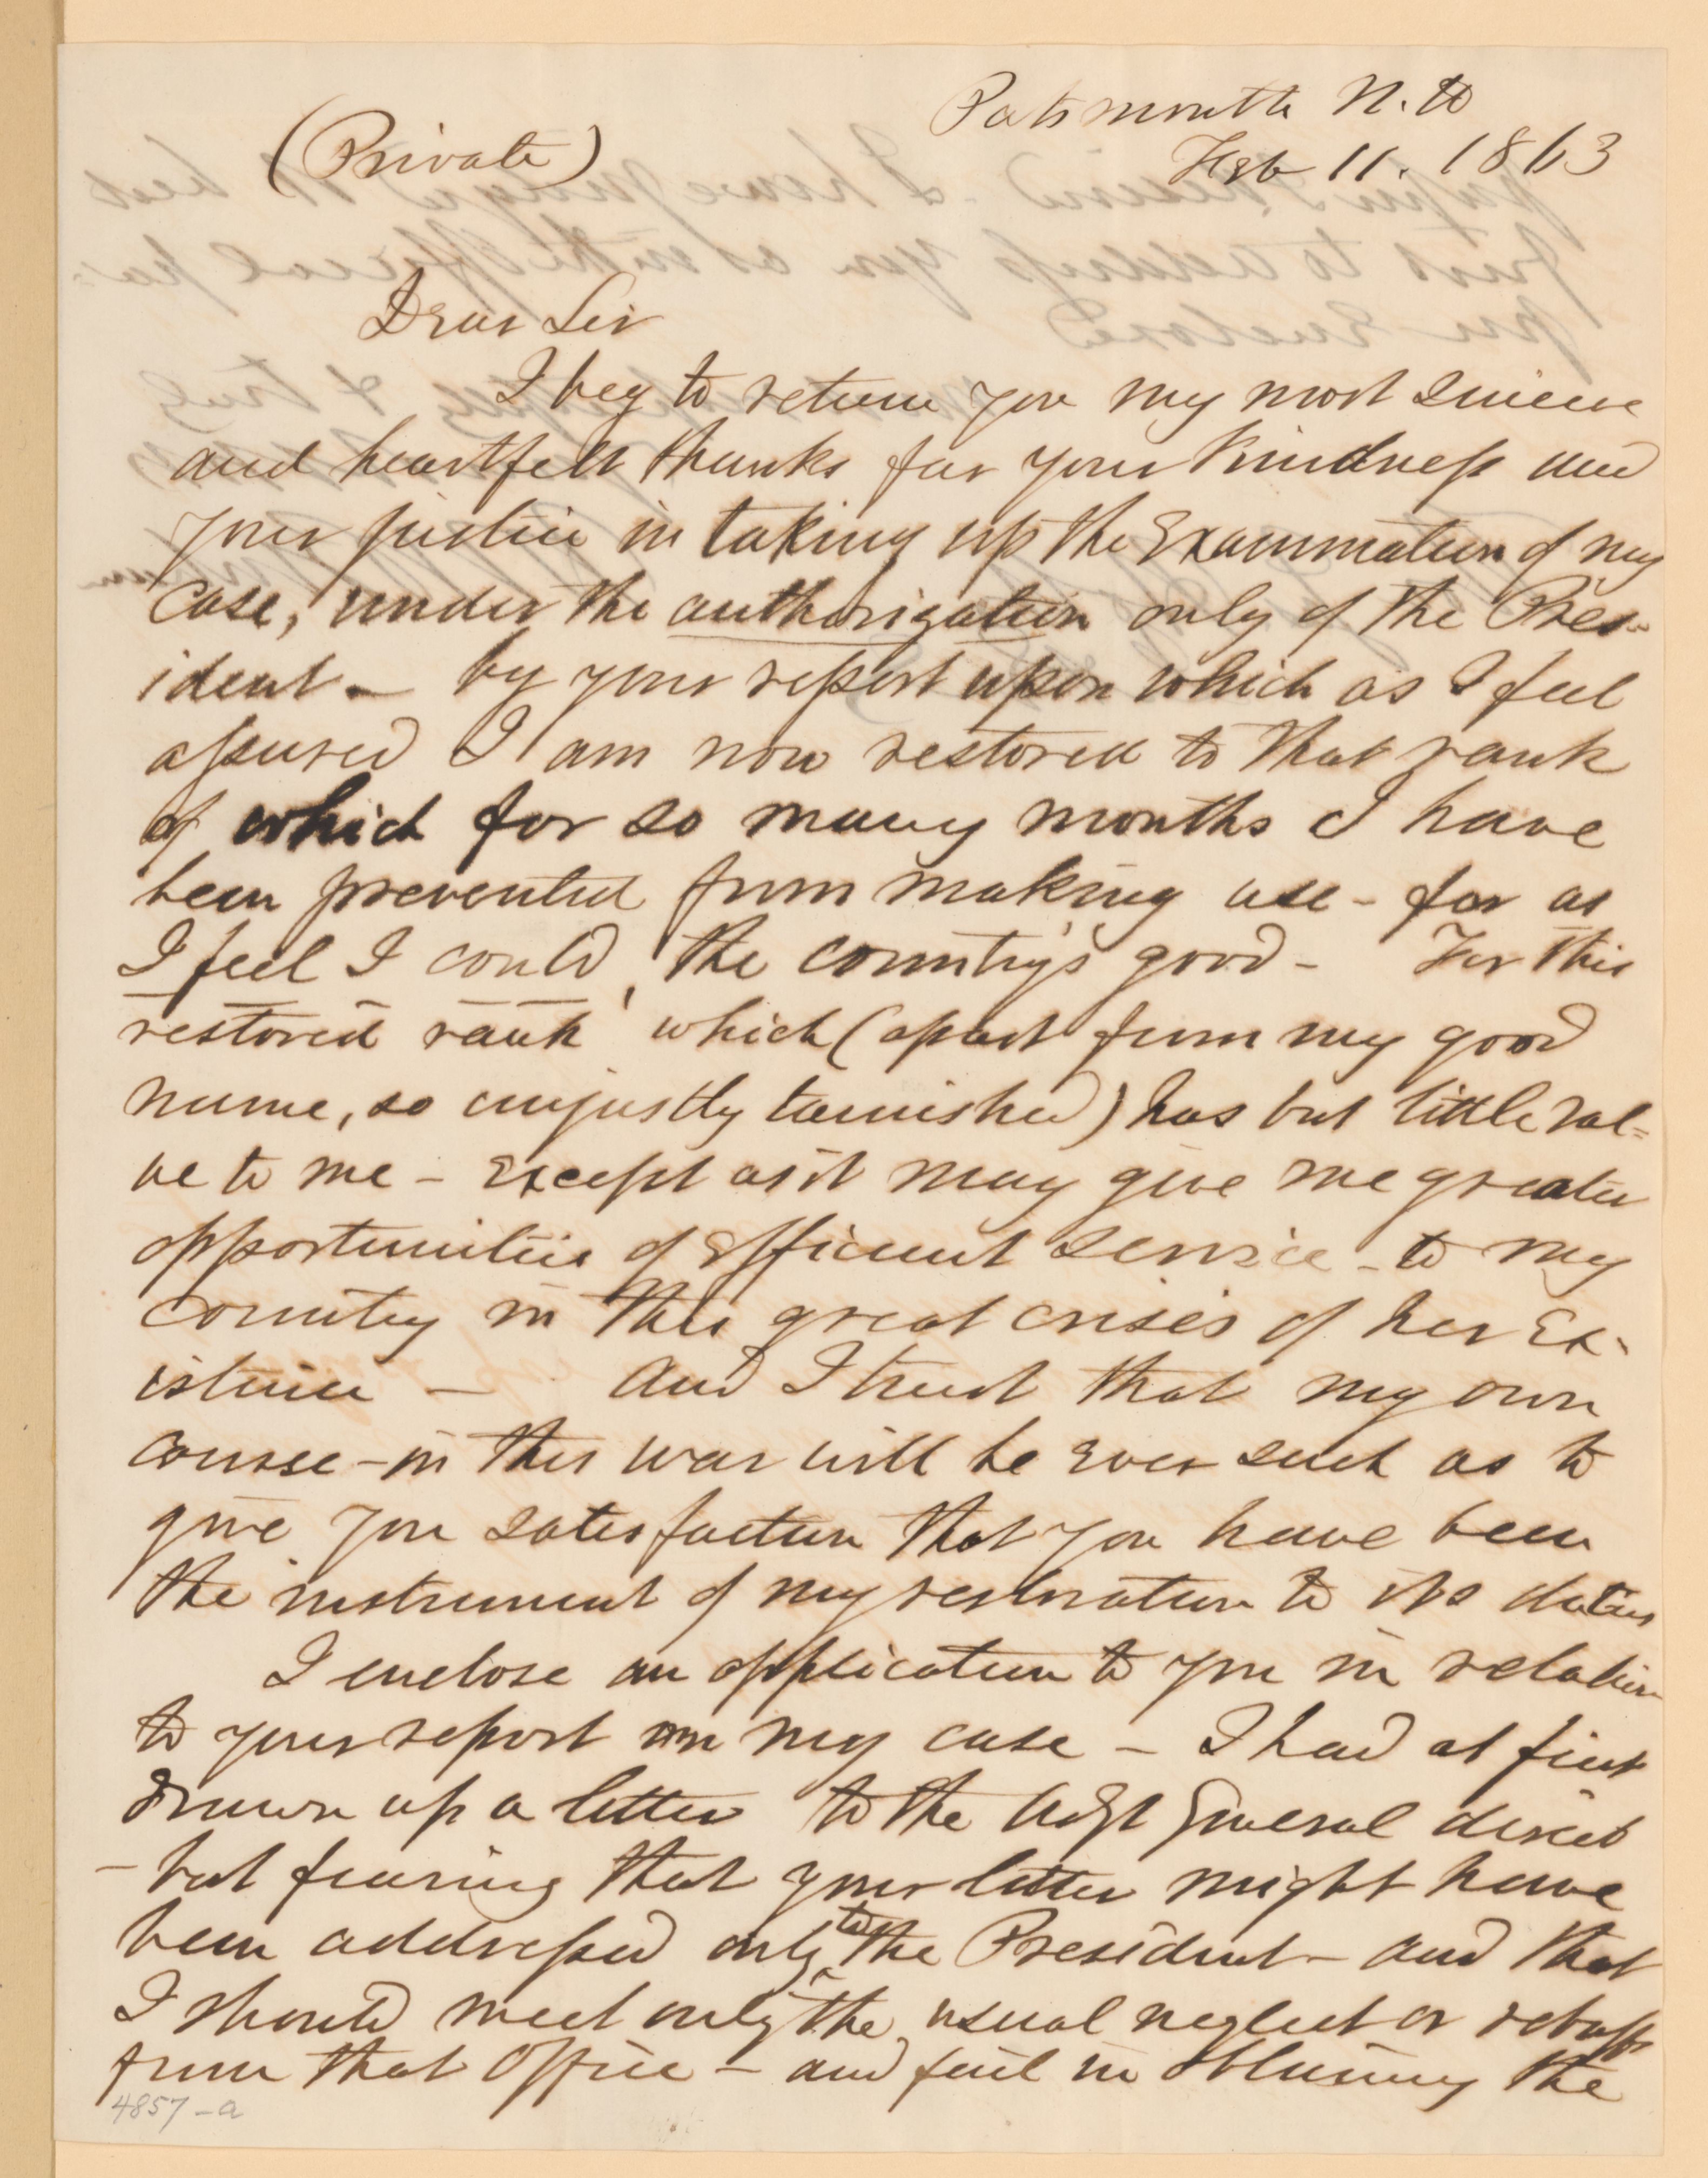 Portsmouth N. H
(Private)
Feb 11. 1863
Dear Sir
I beg to return you my most sincere
and heartfelt thanks for your kindness and
your justice in taking up the Examination of my
case, under the authorization only of the Pres-
ident - by your report upon which as I feel
assured I am now restored to that rank
of which for so many months I have
been prevented from making use - for as
I feel I could, the country's good - For this
restored rank which (apart from my good
name, so unjustly tarnished) has but little val=
ue to me - Except as it may give me greater
opportunities of Efficient service - to my
country in this great crisis of her Ex-
istence - And I trust that my own
course - in this war will be Ever such as to
give you satisfaction that you have been
the instrument of my restoration to its duties
I enclose an application to you in relation
to your report on my case - I had at first
drawn up a letter to the Adjt General direct
- but fearing that your letter might have
been addressed only to the President - and that
I should meet only the usual neglect or rebuff
from that Office - and fail in obtaining the
4857-a